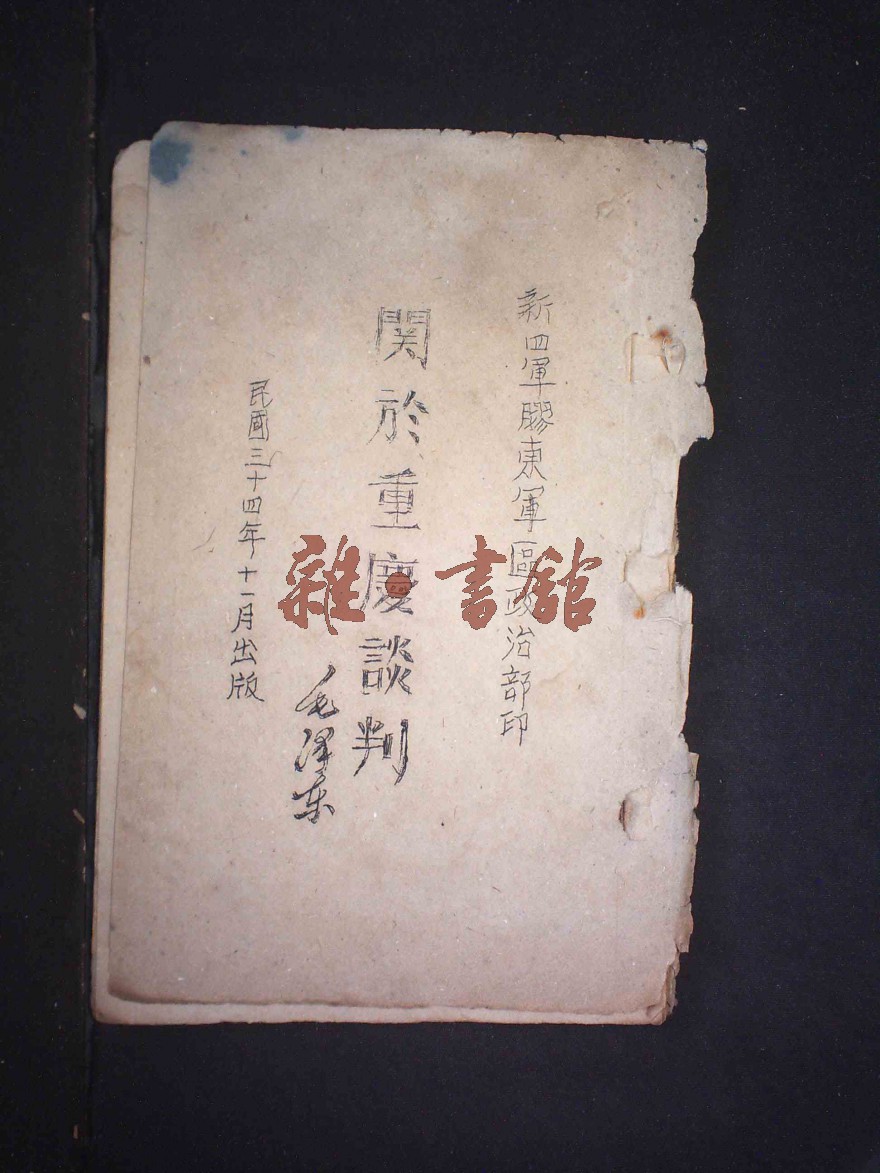 新四軍膠東軍區政治部印
関於重慶談判
毛泽东
民國三十四年十一月出版
雜書館